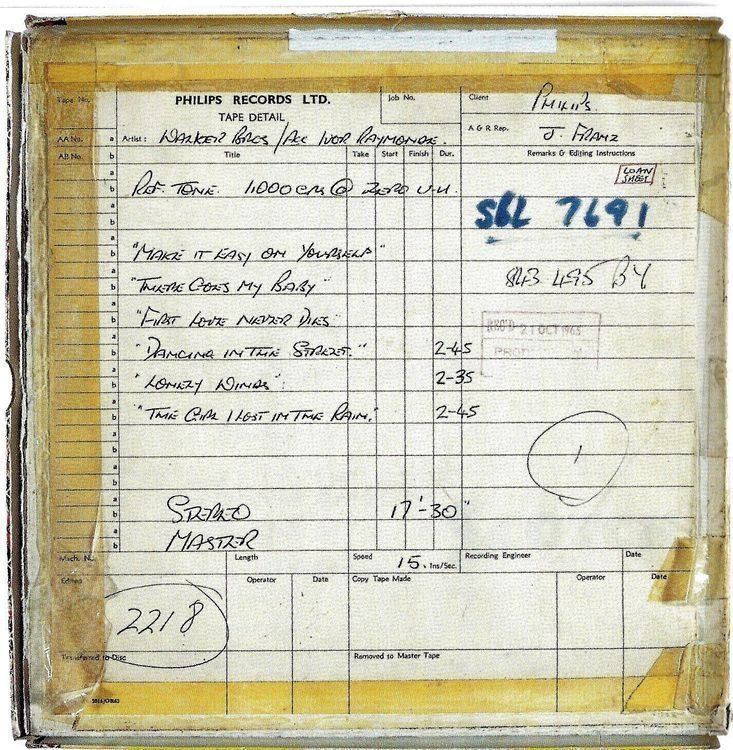 Tape No.
PHILIPS RECORDS LTD.
TAPE DETAIL
Job No.
Client PHILIPS
AA No. a Artist: WALKER BROS / Acc IVOR RAYMONDE.
A & R Rep. J. FRANZ
AB No. b Title Take Start Finish Dur. Remarks & Editing Instructions
REF. TONE 1,000 cps @ ZERO V.U.
LOAN SHEET
SBL 7691
"MAKE IT EASY ON YOURSELF"
"THERE GOES MY BABY" 843 495 BY
"FIRST LOVE NEVER DIES"
REC'D 21 OCT 1965
"DANCING IN THE STREET." 2-45
"LONELY WINDS": 2-35
"THE GIRL I LOST IN THE RAIN." 2-45
1
STEREO 17'-30"
MASTER
Mach. No. Length Speed 15. Ins/Sec. Recording Engineer Date
Edited Operator Date Copy Tape Made Operator Date
2218
Transferred to Disc Removed to Master Tape